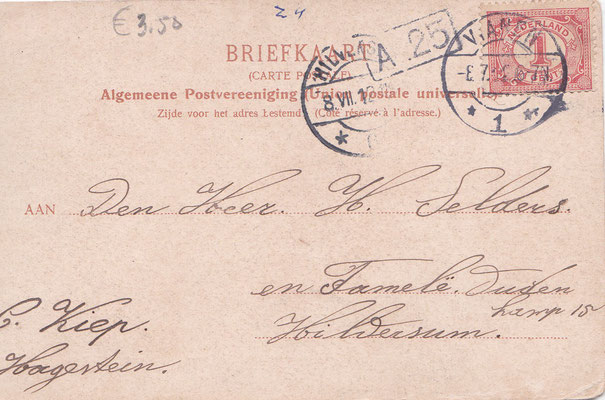 € 3.50
24
BRIEFKAART
(CARTE POSTALE)
Algemeene Postvereeniging (Union postale universelle)
Zijde voor het adres bestemd. (Côté réservé à l'adresse.)
A 25
8 VII. 12
NEDERLAND
1
VIANEN
1
AAN Den Heer. H. Selders.
en Famelë. Duden
kamp 15
Hildersum.
C. Kiep.
Hagestein.